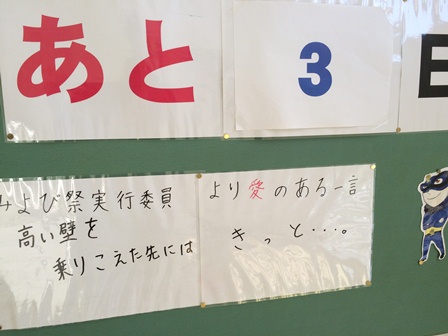 あと 3
みよび祭実行委員 より愛のある一言
高い壁を
乗りこえた先には きっと・・・。